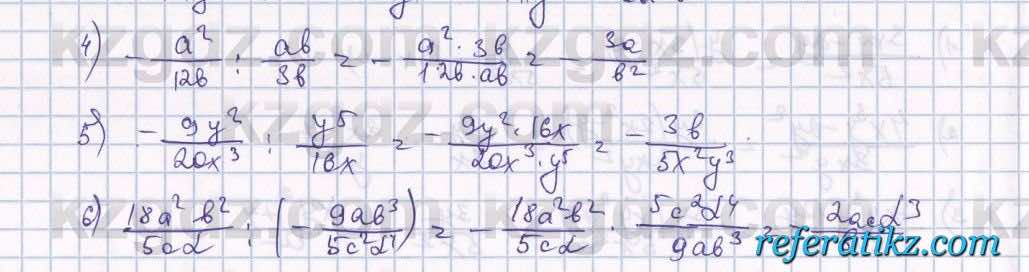 4) - a²/12b : ab/3b = - a² · 3b/12b · ab = - 3a/b²
5) - 9y²/20x³ : y⁵/16x = - 9y² · 16x/20x³ · y⁵ = - 3b/5x²y³
6) 18a²b²/5cd : (- 9ab³/5c²d⁴) = - 18a²b²/5cd · 5c²d⁴/9ab³ = - 2acd³
referatikz.com